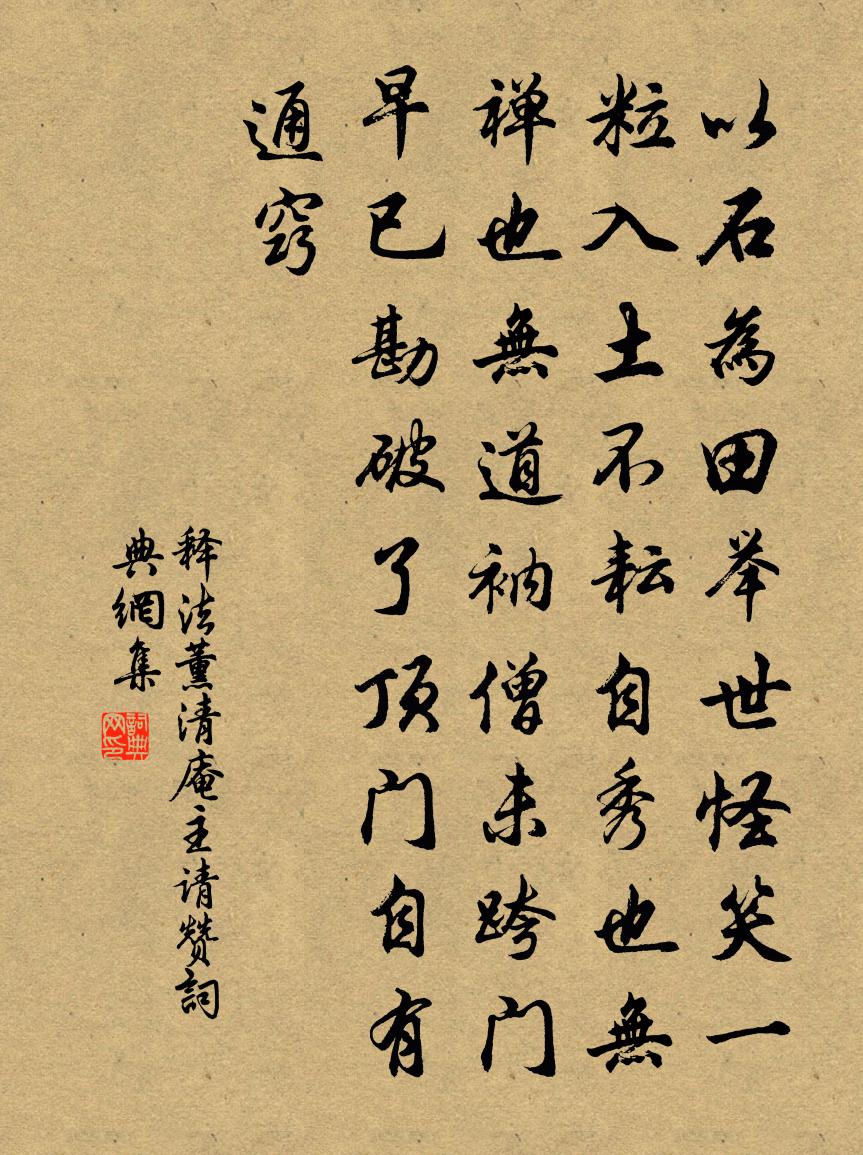 以石為田举世怪笑一
粒入土不耘自秀也無
禅也無道衲僧未跨门
早已勘破了顶门自有
通窍
释法薰清庵主请赞詞
典網集
詞典网印